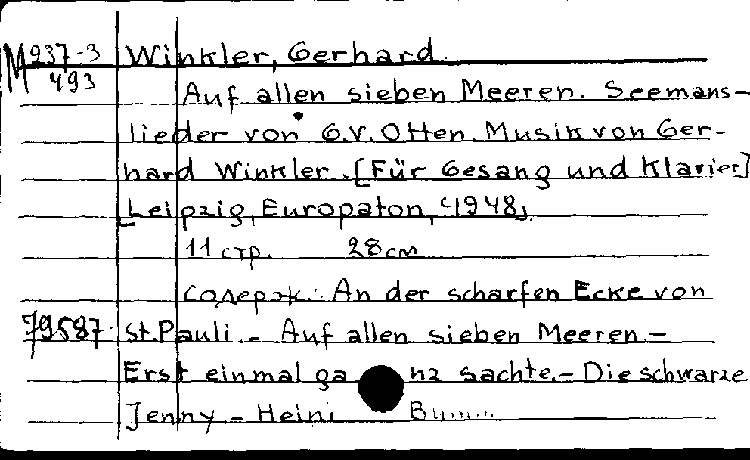 М 937-3 Winkler, Gerhard
493
Auf allen sieben Meeren. Seemans-
lieder von G.V. Otten. Musik von Ger-
hard Winkler. [Für Gesang und Klavier]
[Leipzig, Europaton, 1948].
11 стр. 28 см
Содерж.: An der scharfen Ecke von
79587 St. Pauli. - Auf allen sieben Meeren. -
Erst einmal ganz sachte. - Die schwarze
Jenny - Heini